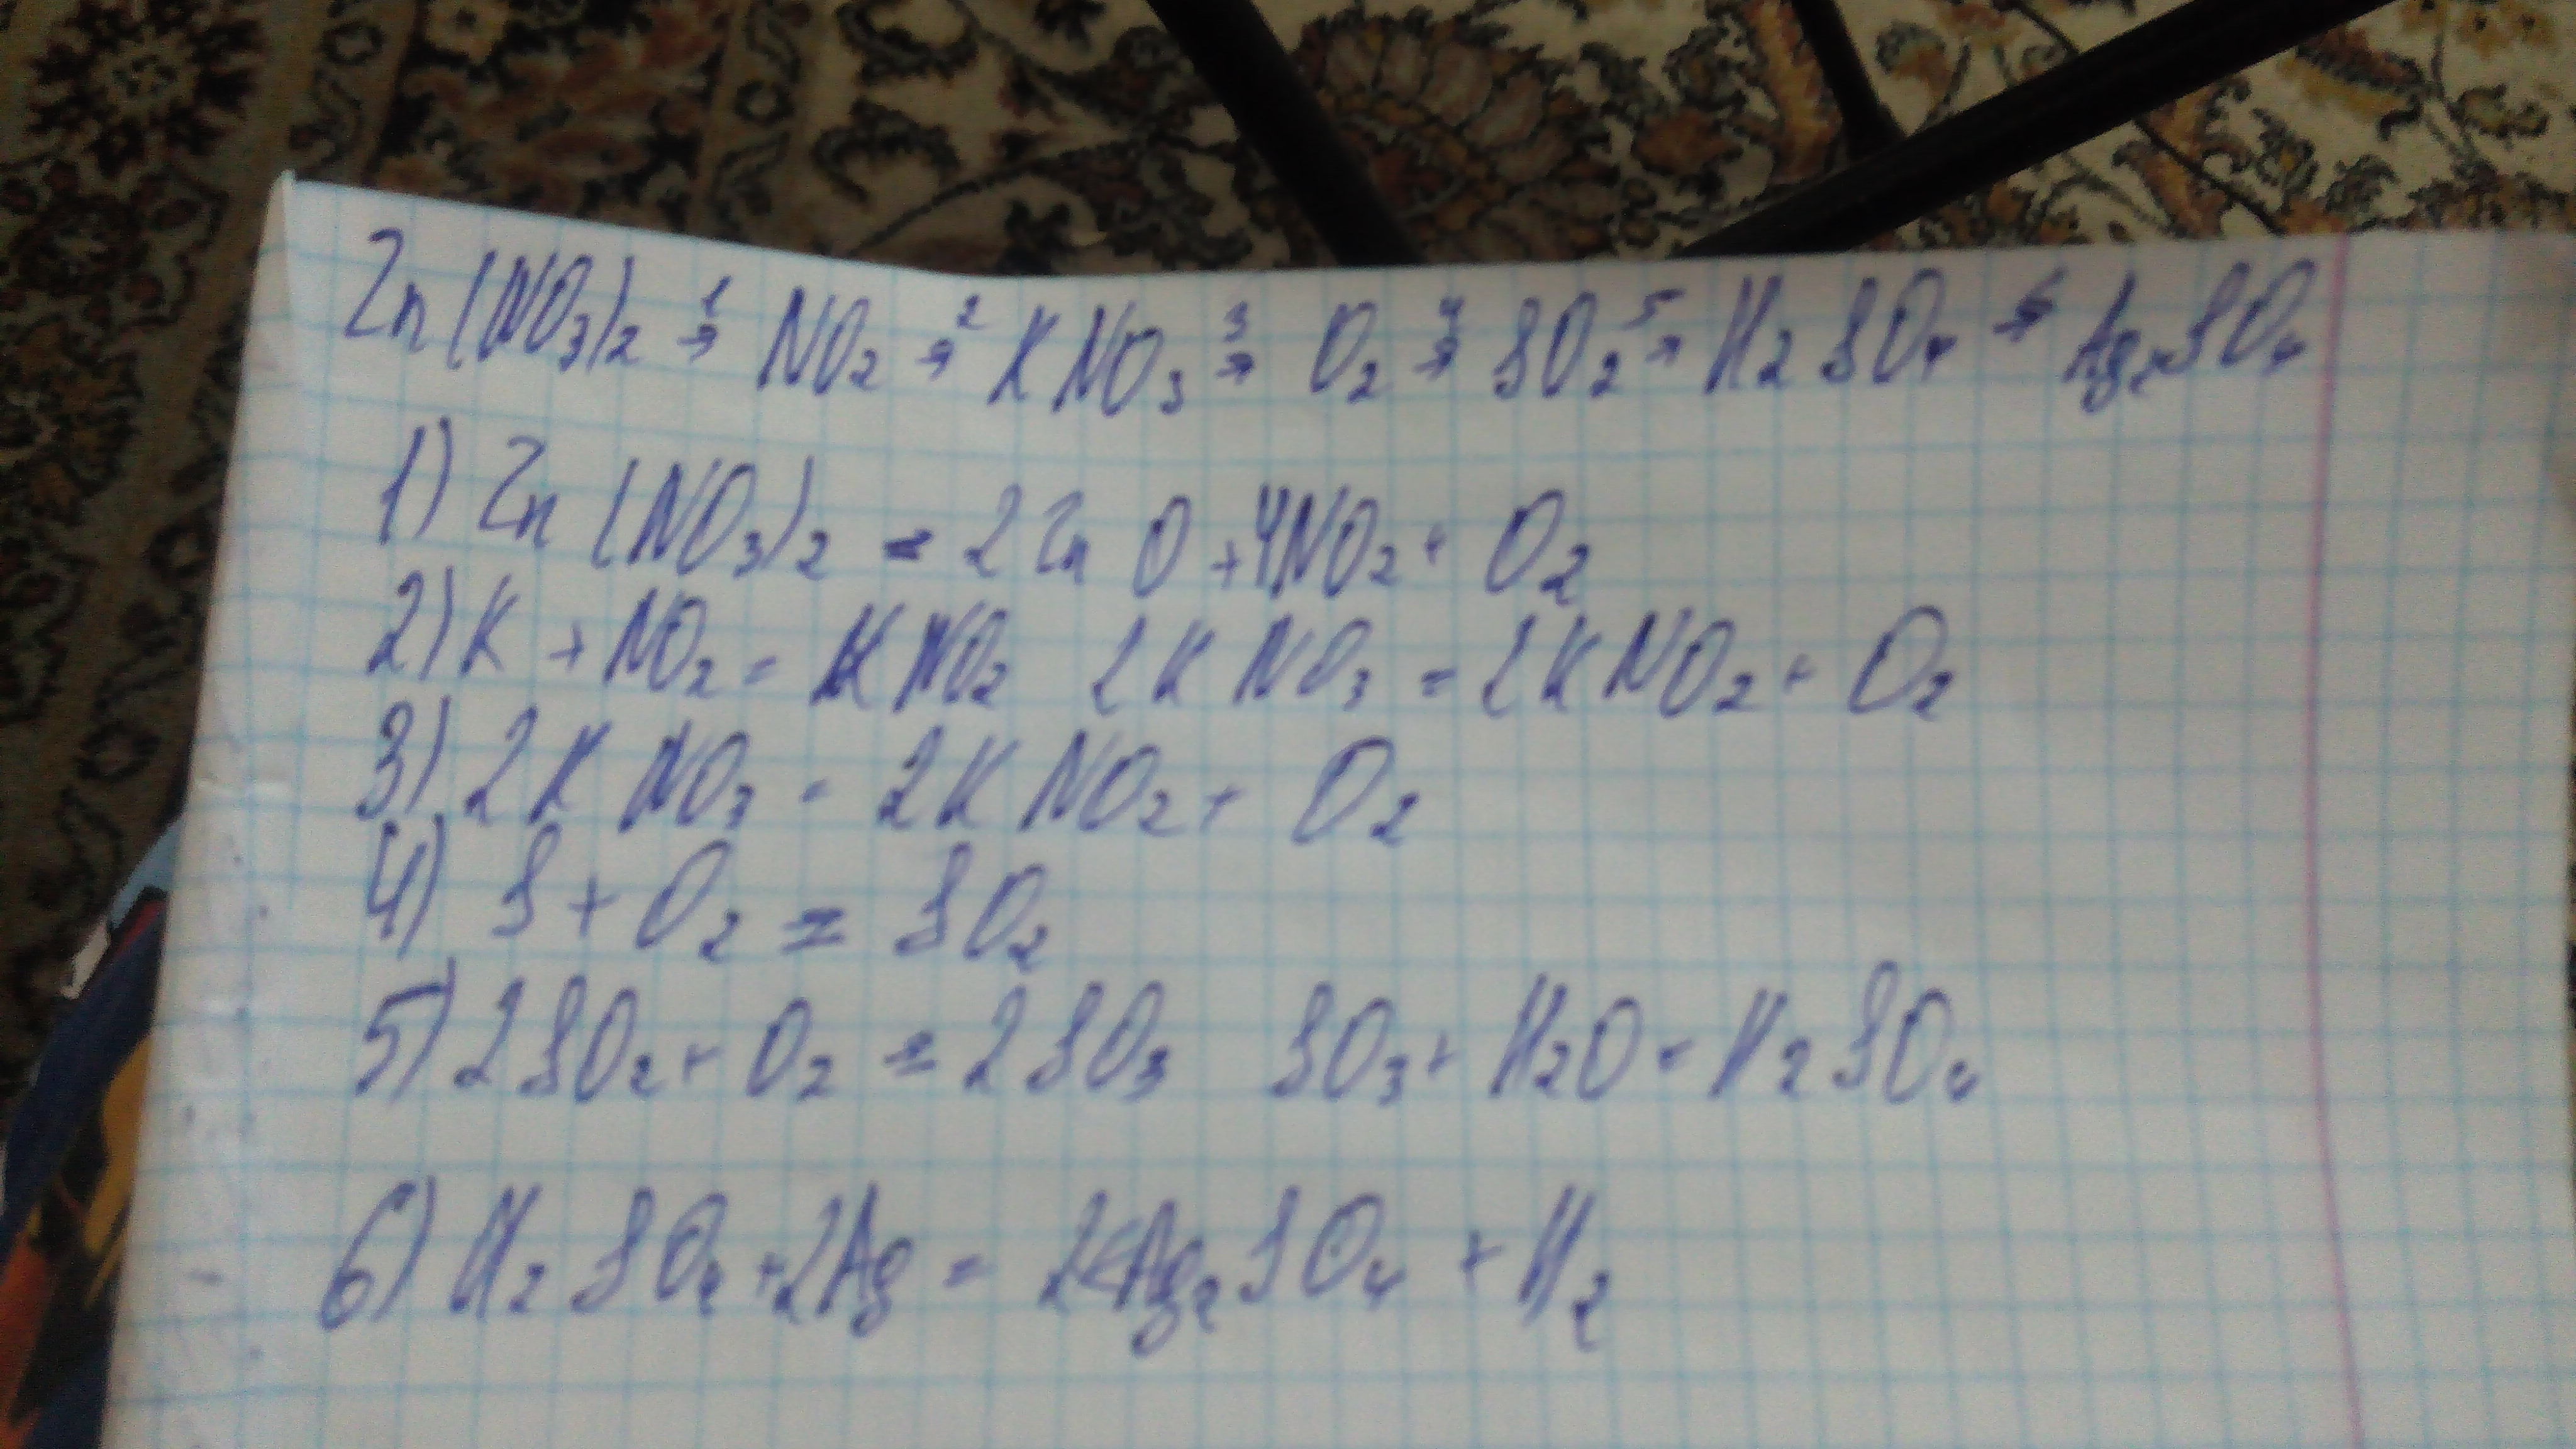 Zn(NO3)2 →1 NO2 →2 KNO3 →3 O2 →4 SO2 →5 H2SO4 →6 Ag2SO4
1) Zn(NO3)2 = 2ZnO + 4NO2 + O2
2) K + NO2 = KNO2 2KNO3 = 2KNO2 + O2
3) 2KNO3 = 2KNO2 + O2
4) S + O2 = SO2
5) 2SO2 + O2 = 2SO3 SO3 + H2O = H2SO4
6) H2SO4 + 2Ag = Ag2SO4 + H2